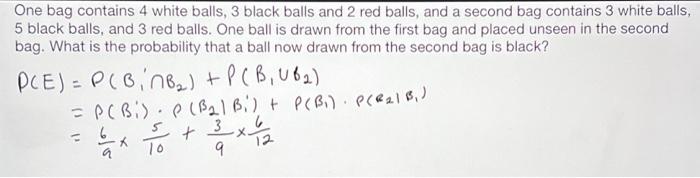 One bag contains 4 white balls, 3 black balls and 2 red balls, and a second bag contains 3 white balls,
5 black balls, and 3 red balls. One ball is drawn from the first bag and placed unseen in the second
bag. What is the probability that a ball now drawn from the second bag is black?
P(E) = P(B₁' ∩ B₂) + P(B₁ ∪ B₂)
= P(B₁') · P(B₂|B₁') + P(B₁) · P(B₂|B₁)
= 6/9 × 5/10 + 3/9 × 6/12